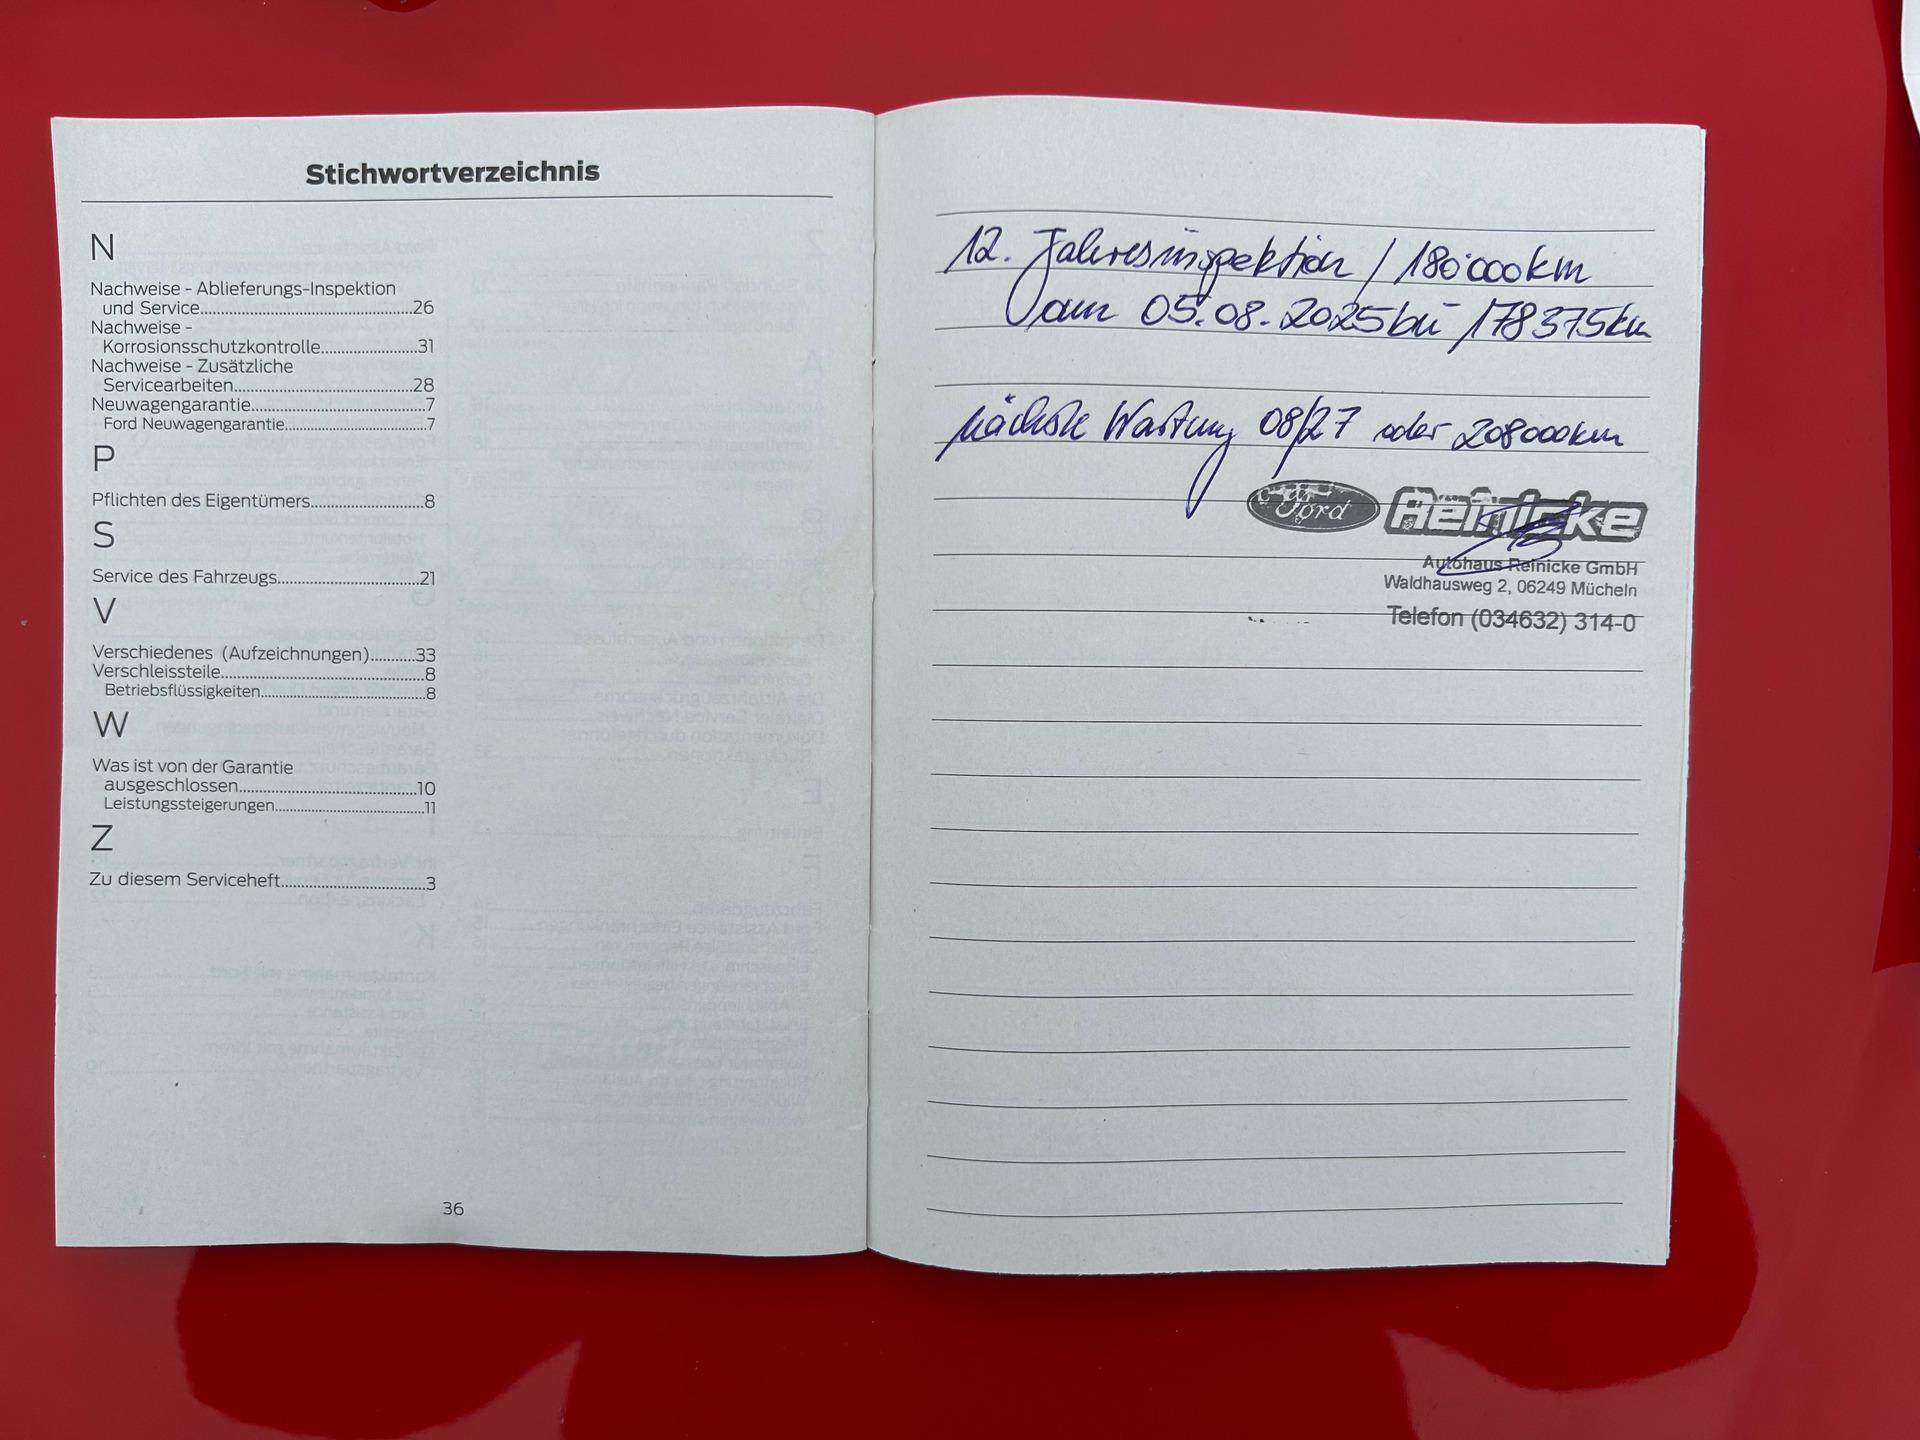 Stichwortverzeichnis
N
Nachweise - Ablieferungs-Inspektion
und Service..............................................26
Nachweise -
Korrosionsschutzkontrolle.......................31
Nachweise - Zusätzliche
Servicearbeiten.........................................28
Neuwagengarantie........................................7
Ford Neuwagengarantie...............................7
P
Pflichten des Eigentümers...........................8
S
Service des Fahrzeugs.................................21
V
Verschiedenes (Aufzeichnungen)...........33
Verschleissteile...............................................8
Betriebsflüssigkeiten....................................8
W
Was ist von der Garantie
ausgeschlossen........................................10
Leistungssteigerungen................................11
Z
Zu diesem Serviceheft..................................3
36
12. Jahresinspektion / 180'000km
am 05.08.2025 bei 178375km
nächste Wartung 08/27 oder 208000km
Ford Reinicke
Autohaus Reinicke GmbH
Waldhausweg 2, 06249 Mücheln
Telefon (034632) 314-0